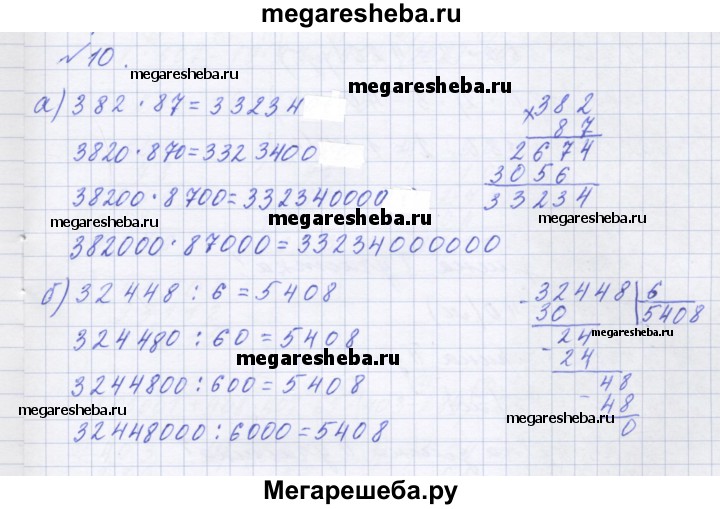 megaresheba.ru
№10.
megaresheba.ru
megaresheba.ru
а) 382 · 87 = 33234
3820 · 870 = 3323400
38200 · 8700 = 332340000
megaresheba.ru
megaresheba.ru
382000 · 87000 = 33234000000
× 382
87
2674
3056
33234
megaresheba.ru
б) 32448 : 6 = 5408
324480 : 60 = 5408
megaresheba.ru
3244800 : 600 = 5408
megaresheba.ru
32448000 : 6000 = 5408
- 32448 | 6
30 5408
24 megaresheba.ru
- 24
48
- 48
megaresheba.ru
0
Мегарешеба.ру